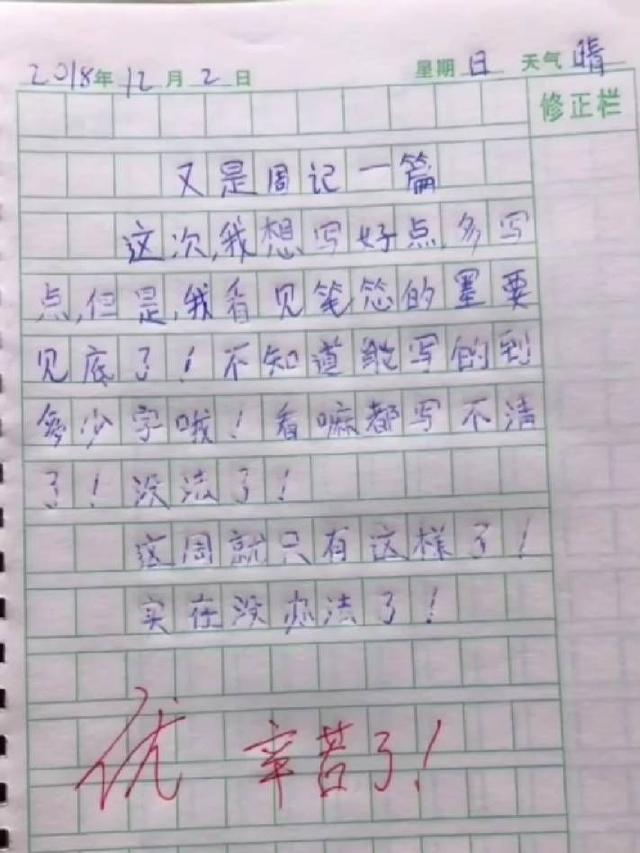 2018年12月2日 星期日 天气晴
修正栏
又是周记一篇
这次,我想写好点多写
点,但是,我看见笔芯的墨要
见底了!不知道能写的到
多少字哦!看嘛都写不清
了!没法了!
这周就只有这样了!
实在没办法了!
优 辛苦了!